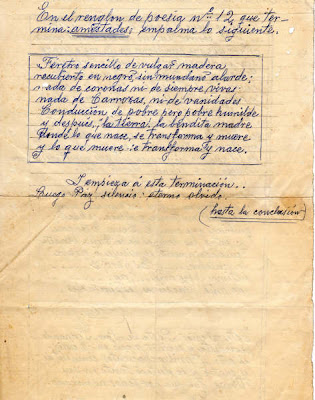 En el renglon de poesia nº 12, que ter-
mina: amistades; empalma lo siguiente.
Feretro sencillo de vulgar madera
recubierto en negro, sin mundano alarde;
nada de coronas ni de siempre vivas
nada de Carrozas, ni de vanidades
Conducción de pobre pero pobre humilde
y después, la tierra, la bendita madre
donde lo que nace, se transforma y muere
y lo que muere se transforma y nace.
I empieza á esta terminación..
Luego Paz silencio: eterno olvido
(hasta la conclusión)